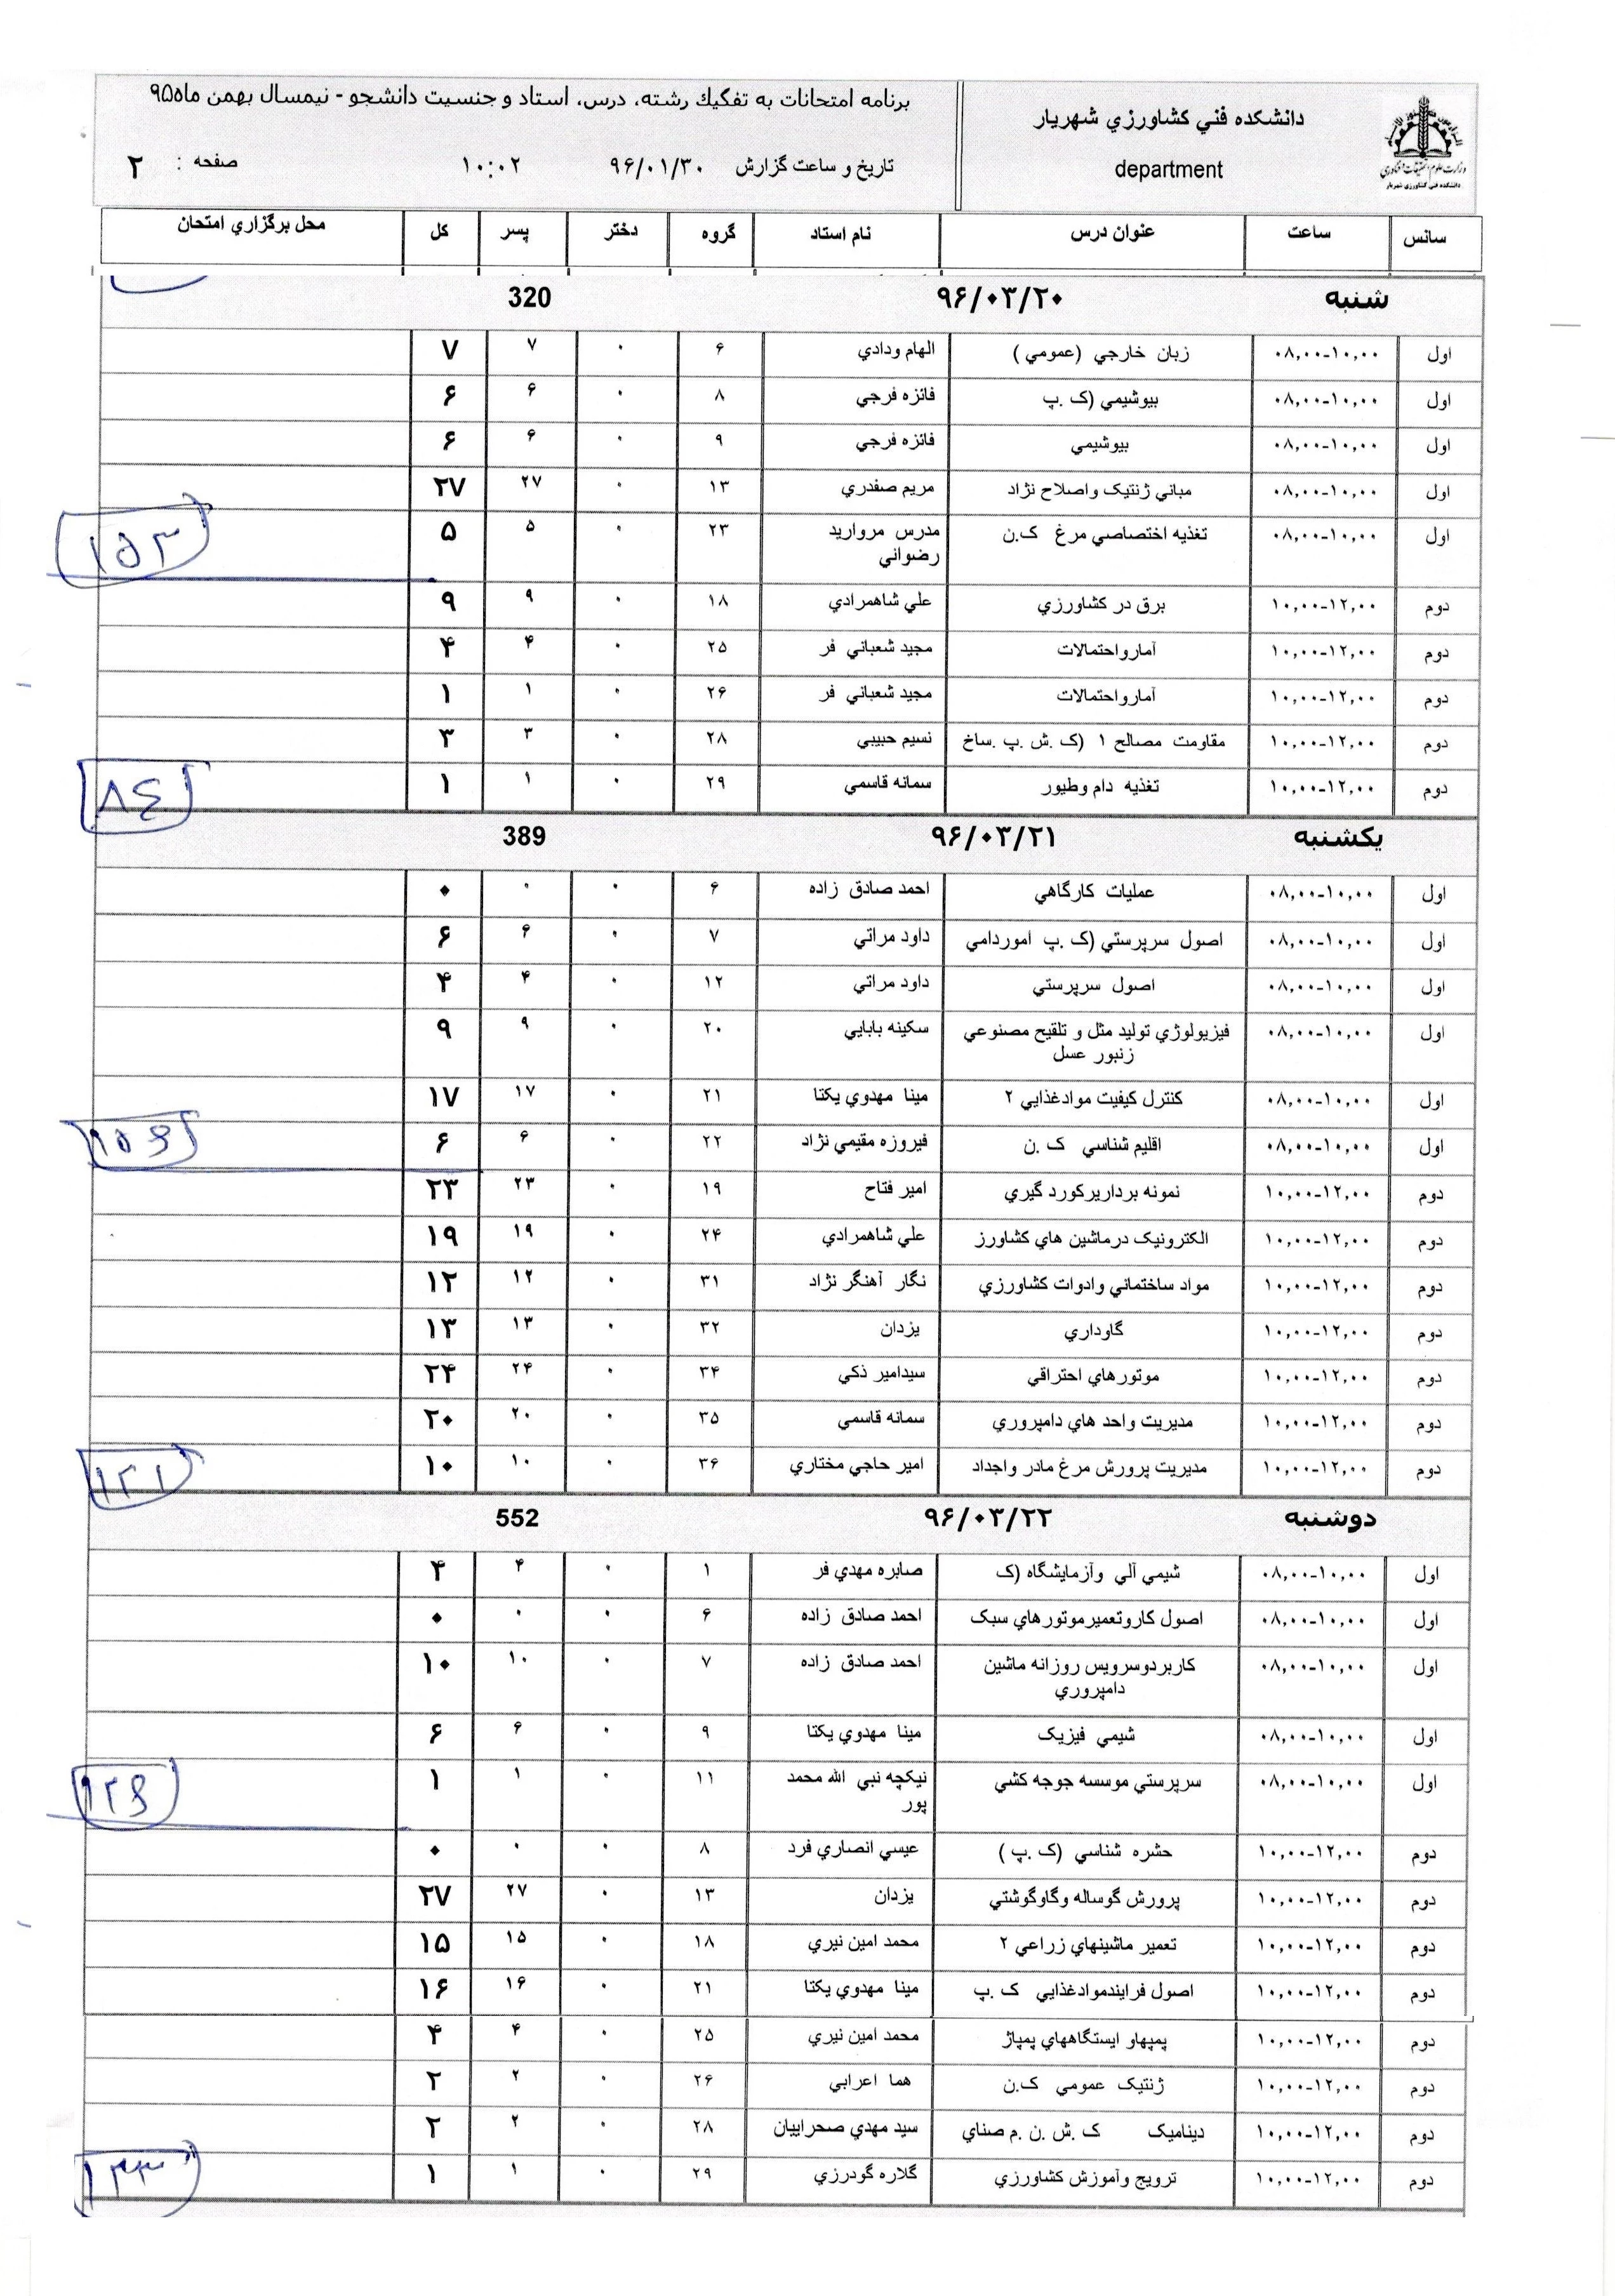 دانشكده فني كشاورزي شهريار
department
وزارت علوم تحقيقات و فناوري
دانشكده فني كشاورزي شهريار
برنامه امتحانات به تفكيك رشته، درس، استاد و جنسيت دانشجو - نيمسال بهمن ماه۹۵
تاريخ و ساعت گزارش ۹۶/۰۱/۳۰ ۱۰:۰۲ صفحه : ۲
سانس ساعت عنوان درس نام استاد گروه دختر پسر كل محل برگزاري امتحان
شنبه ۹۶/۰۳/۲۰ 320
اول ۰۸,۰۰-۱۰,۰۰ زبان خارجي (عمومي ) الهام ودادي ۶ ۰ ۷ ۷
اول ۰۸,۰۰-۱۰,۰۰ بيوشيمي (ک .پ فائزه فرجي ۸ ۰ ۶ ۶
اول ۰۸,۰۰-۱۰,۰۰ بيوشيمي فائزه فرجي ۹ ۰ ۶ ۶
اول ۰۸,۰۰-۱۰,۰۰ مباني ژنتيک واصلاح نژاد مريم صفدري ۱۳ ۰ ۲۷ ۲۷
اول ۰۸,۰۰-۱۰,۰۰ تغذيه اختصاصي مرغ ک.ن مدرس مرواريد ۲۳ ۰ ۵ ۵
رضواني
۱۵۳
دوم ۱۰,۰۰-۱۲,۰۰ برق در كشاورزي علي شاهمرادي ۱۸ ۰ ۹ ۹
دوم ۱۰,۰۰-۱۲,۰۰ آمارواحتمالات مجيد شعباني فر ۲۵ ۰ ۴ ۴
دوم ۱۰,۰۰-۱۲,۰۰ آمارواحتمالات مجيد شعباني فر ۲۶ ۰ ۱ ۱
دوم ۱۰,۰۰-۱۲,۰۰ مقاومت مصالح ۱ (ک .ش .پ .ساخ نسيم حبيبي ۲۸ ۰ ۳ ۳
دوم ۱۰,۰۰-۱۲,۰۰ تغذيه دام وطيور سمانه قاسمي ۲۹ ۰ ۱ ۱
۸٤
يكشنبه ۹۶/۰۳/۲۱ 389
اول ۰۸,۰۰-۱۰,۰۰ عمليات كارگاهي احمد صادق زاده ۶ ۰ ۰ ۰
اول ۰۸,۰۰-۱۰,۰۰ اصول سرپرستي (ک .پ اموردامي داود مراتي ۷ ۰ ۶ ۶
اول ۰۸,۰۰-۱۰,۰۰ اصول سرپرستي داود مراتي ۱۲ ۰ ۴ ۴
اول ۰۸,۰۰-۱۰,۰۰ فيزيولوژي توليد مثل و تلقيح مصنوعي سكينه بابايي ۲۰ ۰ ۹ ۹
زنبور عسل
اول ۰۸,۰۰-۱۰,۰۰ كنترل كيفيت موادغذايي ۲ مينا مهدوي يكتا ۲۱ ۰ ۱۷ ۱۷
اول ۰۸,۰۰-۱۰,۰۰ اقليم شناسي ک .ن فيروزه مقيمي نژاد ۲۲ ۰ ۶ ۶
۱۵۶
دوم ۱۰,۰۰-۱۲,۰۰ نمونه برداريركورد گيري امير فتاح ۱۹ ۰ ۲۳ ۲۳
دوم ۱۰,۰۰-۱۲,۰۰ الكترونيک درماشين هاي كشاورز علي شاهمرادي ۲۴ ۰ ۱۹ ۱۹
دوم ۱۰,۰۰-۱۲,۰۰ مواد ساختماني وادوات كشاورزي نگار آهنگر نژاد ۳۱ ۰ ۱۲ ۱۲
دوم ۱۰,۰۰-۱۲,۰۰ گاوداري يزدان ۳۲ ۰ ۱۳ ۱۳
دوم ۱۰,۰۰-۱۲,۰۰ موتورهاي احتراقي سيدامير ذكي ۳۴ ۰ ۲۴ ۲۴
دوم ۱۰,۰۰-۱۲,۰۰ مديريت واحد هاي دامپروري سمانه قاسمي ۳۵ ۰ ۲۰ ۲۰
دوم ۱۰,۰۰-۱۲,۰۰ مديريت پرورش مرغ مادر واجداد امير حاجي مختاري ۳۶ ۰ ۱۰ ۱۰
۱۲۱
دوشنبه ۹۶/۰۳/۲۲ 552
اول ۰۸,۰۰-۱۰,۰۰ شيمي آلي وآزمايشگاه (ک صابره مهدي فر ۱ ۰ ۴ ۴
اول ۰۸,۰۰-۱۰,۰۰ اصول كاروتعميرموتورهاي سبک احمد صادق زاده ۶ ۰ ۰ ۰
اول ۰۸,۰۰-۱۰,۰۰ كاربردوسرويس روزانه ماشين احمد صادق زاده ۷ ۰ ۱۰ ۱۰
دامپروري
اول ۰۸,۰۰-۱۰,۰۰ شيمي فيزيک مينا مهدوي يكتا ۹ ۰ ۶ ۶
اول ۰۸,۰۰-۱۰,۰۰ سرپرستي موسسه جوجه كشي نيكچه نبي الله محمد ۱۱ ۰ ۱ ۱
پور
۱۲۶
دوم ۱۰,۰۰-۱۲,۰۰ حشره شناسي (ک .پ ) عيسي انصاري فرد ۸ ۰ ۰ ۰
دوم ۱۰,۰۰-۱۲,۰۰ پرورش گوساله وگاوگوشتي يزدان ۱۳ ۰ ۲۷ ۲۷
دوم ۱۰,۰۰-۱۲,۰۰ تعمير ماشينهاي زراعي ۲ محمد امين نيري ۱۸ ۰ ۱۵ ۱۵
دوم ۱۰,۰۰-۱۲,۰۰ اصول فرايندموادغذايي ک .پ مينا مهدوي يكتا ۲۱ ۰ ۱۶ ۱۶
دوم ۱۰,۰۰-۱۲,۰۰ پمپهاو ايستگاههاي پمپاژ محمد امين نيري ۲۵ ۰ ۴ ۴
دوم ۱۰,۰۰-۱۲,۰۰ ژنتيک عمومي ک.ن هما اعرابي ۲۶ ۰ ۲ ۲
دوم ۱۰,۰۰-۱۲,۰۰ ديناميک ک .ش .ن .م صناي سيد مهدي صحراييان ۲۸ ۰ ۲ ۲
دوم ۱۰,۰۰-۱۲,۰۰ ترويج وآموزش كشاورزي گلاره گودرزي ۲۹ ۰ ۱ ۱